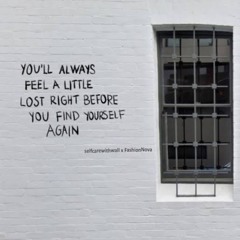 YOU'LL ALWAYS
FEEL A LITTLE
LOST RIGHT BEFORE
YOU FIND YOURSELF
AGAIN
selfcarewithwall x FashionNova